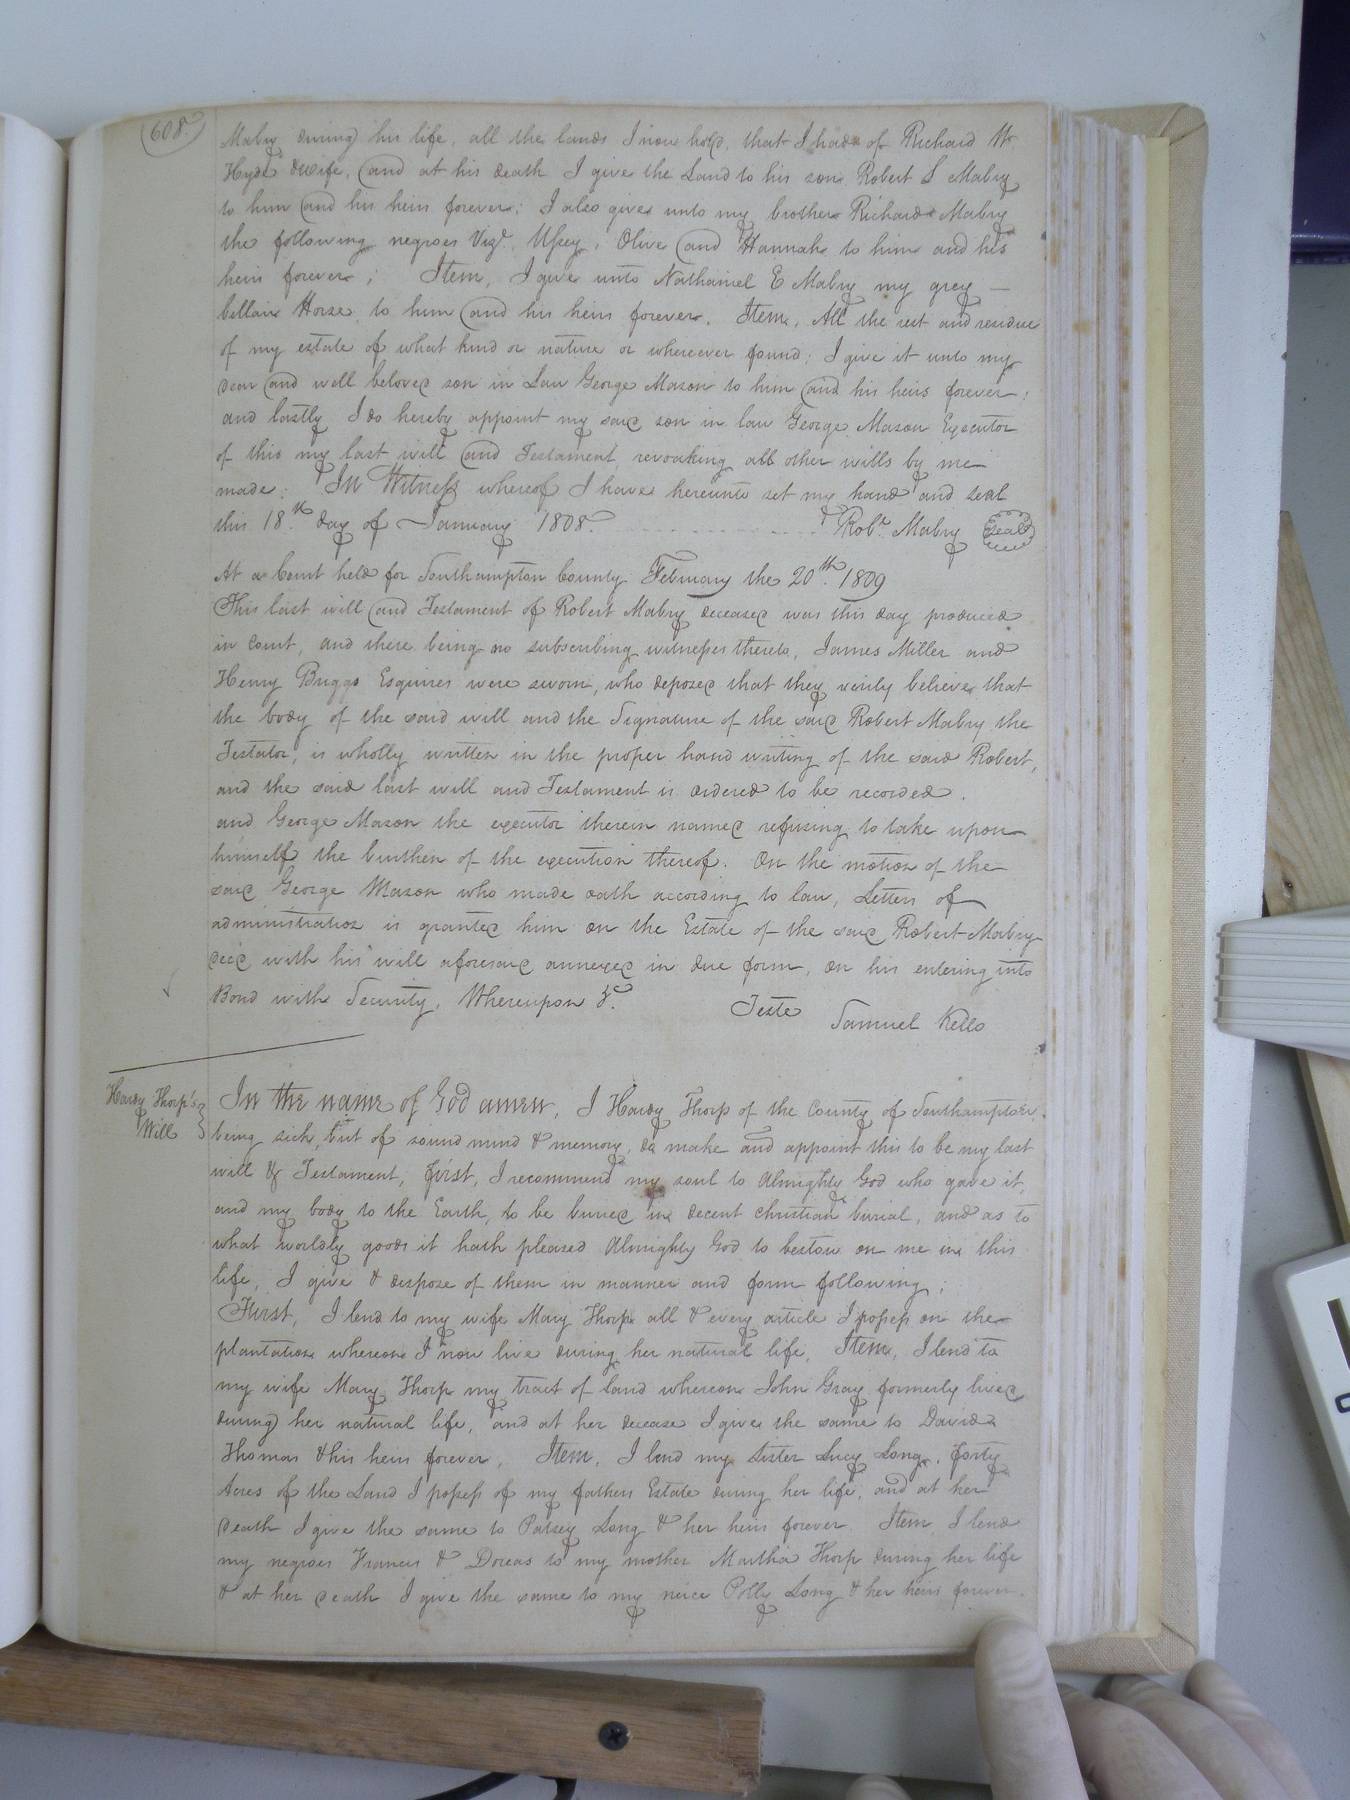 (608)
Mabry during his life, all the lands I now hold, that I had of Richard W
Hyde & wife, and at his death I give the Land to his son Robert S Mabry
to him and his heirs forever; I also give unto my brother Richard Mabry
the following negroes Vizt. Upsey, Olive and Hannah to him and his
heirs forever; Item, I give unto Nathaniel E Mabry my grey —
bellair Horse, to him and his heirs forever. Item, All the rest and residue
of my estate of what kind or nature or wherever found; I give it unto my
dear and well beloved son in Law George Mason to him and his heirs forever;
and lastly I do hereby appoint my said son in law George Mason Executor
of this my last will and Testament, revoaking all other wills by me
made: In Witness whereof I have hereunto set my hand and seal
this 18th. day of January 1808. Robt. Mabry seal
At a Court held for Southampton County February the 20th. 1809
This last will and Testament of Robert Mabry deceased was this day produced
in court, and there being no subscribing witnesses thereto, James Miller and
Henry Briggs Esquires were sworn, who deposed that they verily believe that
the body of the said will and the Signature of the said Robert Mabry the
Testator, is wholly written in the proper hand writing of the said Robert,
and the said last will and Testament is ordered to be recorded.
and George Mason the executor therein named refusing to take upon
himself the burthen of the execution thereof. On the motion of the
said George Mason who made oath according to law, Letters of
administration is granted him on the Estate of the said Robert Mabry
decd. with his will aforesaid annexed in due form, on his entering into
Bond with Security, Whereupon &c.
Teste Samuel Kello
Hardy Thorp's
Will
In the name of God amen, I Hardy Thorp of the County of Southampton
being sick, but of sound mind & memory, do make and appoint this to be my last
will & Testament, first, I recommend my soul to Almighty God who gave it,
and my body to the Earth, to be buried in decent christian burial, and as to
what worldly goods it hath pleased Almighty God to bestow on me in this
life, I give & dispose of them in manner and form following;
First, I lend to my wife Mary Thorp all & every article I possess on the
plantation whereon I now live during her natural life, Item, I lend to
my wife Mary Thorp my tract of land whereon John Gray formerly lived
during her natural life, and at her decease I give the same to David
Thomas & his heirs forever, Item, I lend my Sister Lucy Long, forty
Acres of the Land I possess of my fathers Estate during her life, and at her
death I give the same to Patsey Long & her heirs forever Item, I lend
my negroes Francis & Dorcas to my mother Martha Thorp during her life
& at her death I give the same to my neice Polly Long & her heirs forever.